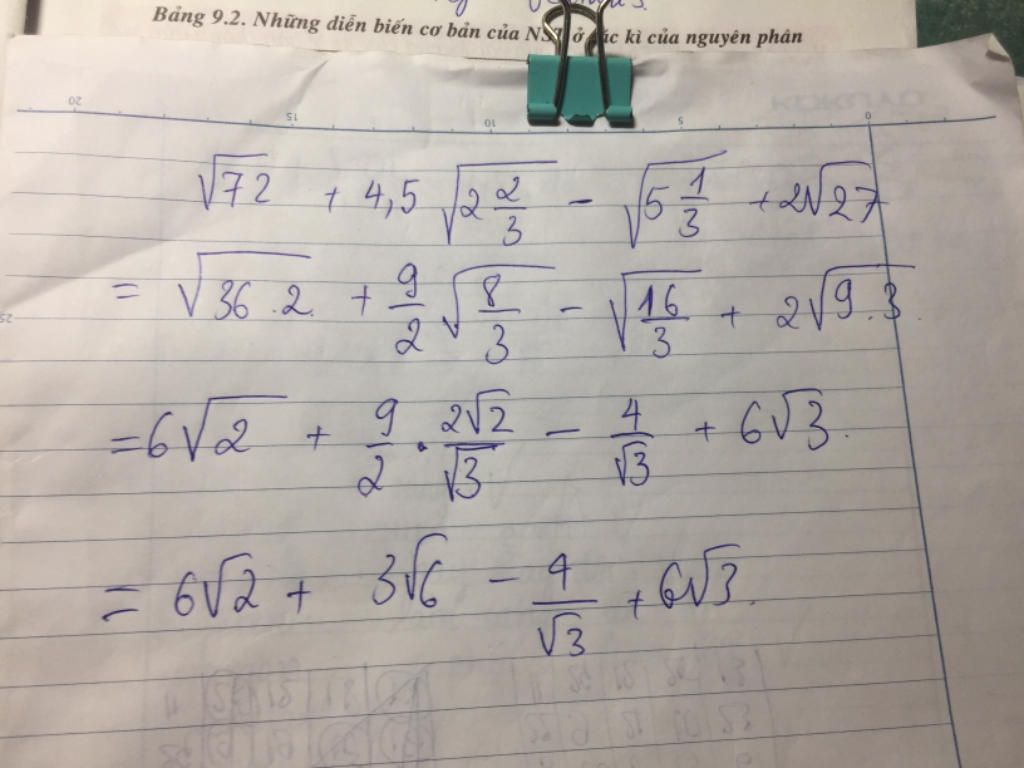 Bảng 9.2. Những diễn biến cơ bản của NST ở các kì của nguyên phân
KOKUYO
20 15 10 5 0
√72 + 4,5 √(2 2/3) - √(5 1/3) + 2√27
25
= √(36.2) + 9/2 √(8/3) - √(16/3) + 2√(9.3)
= 6√2 + 9/2 . 2√2/√3 - 4/√3 + 6√3.
= 6√2 + 3√6 - 4/√3 + 6√3.